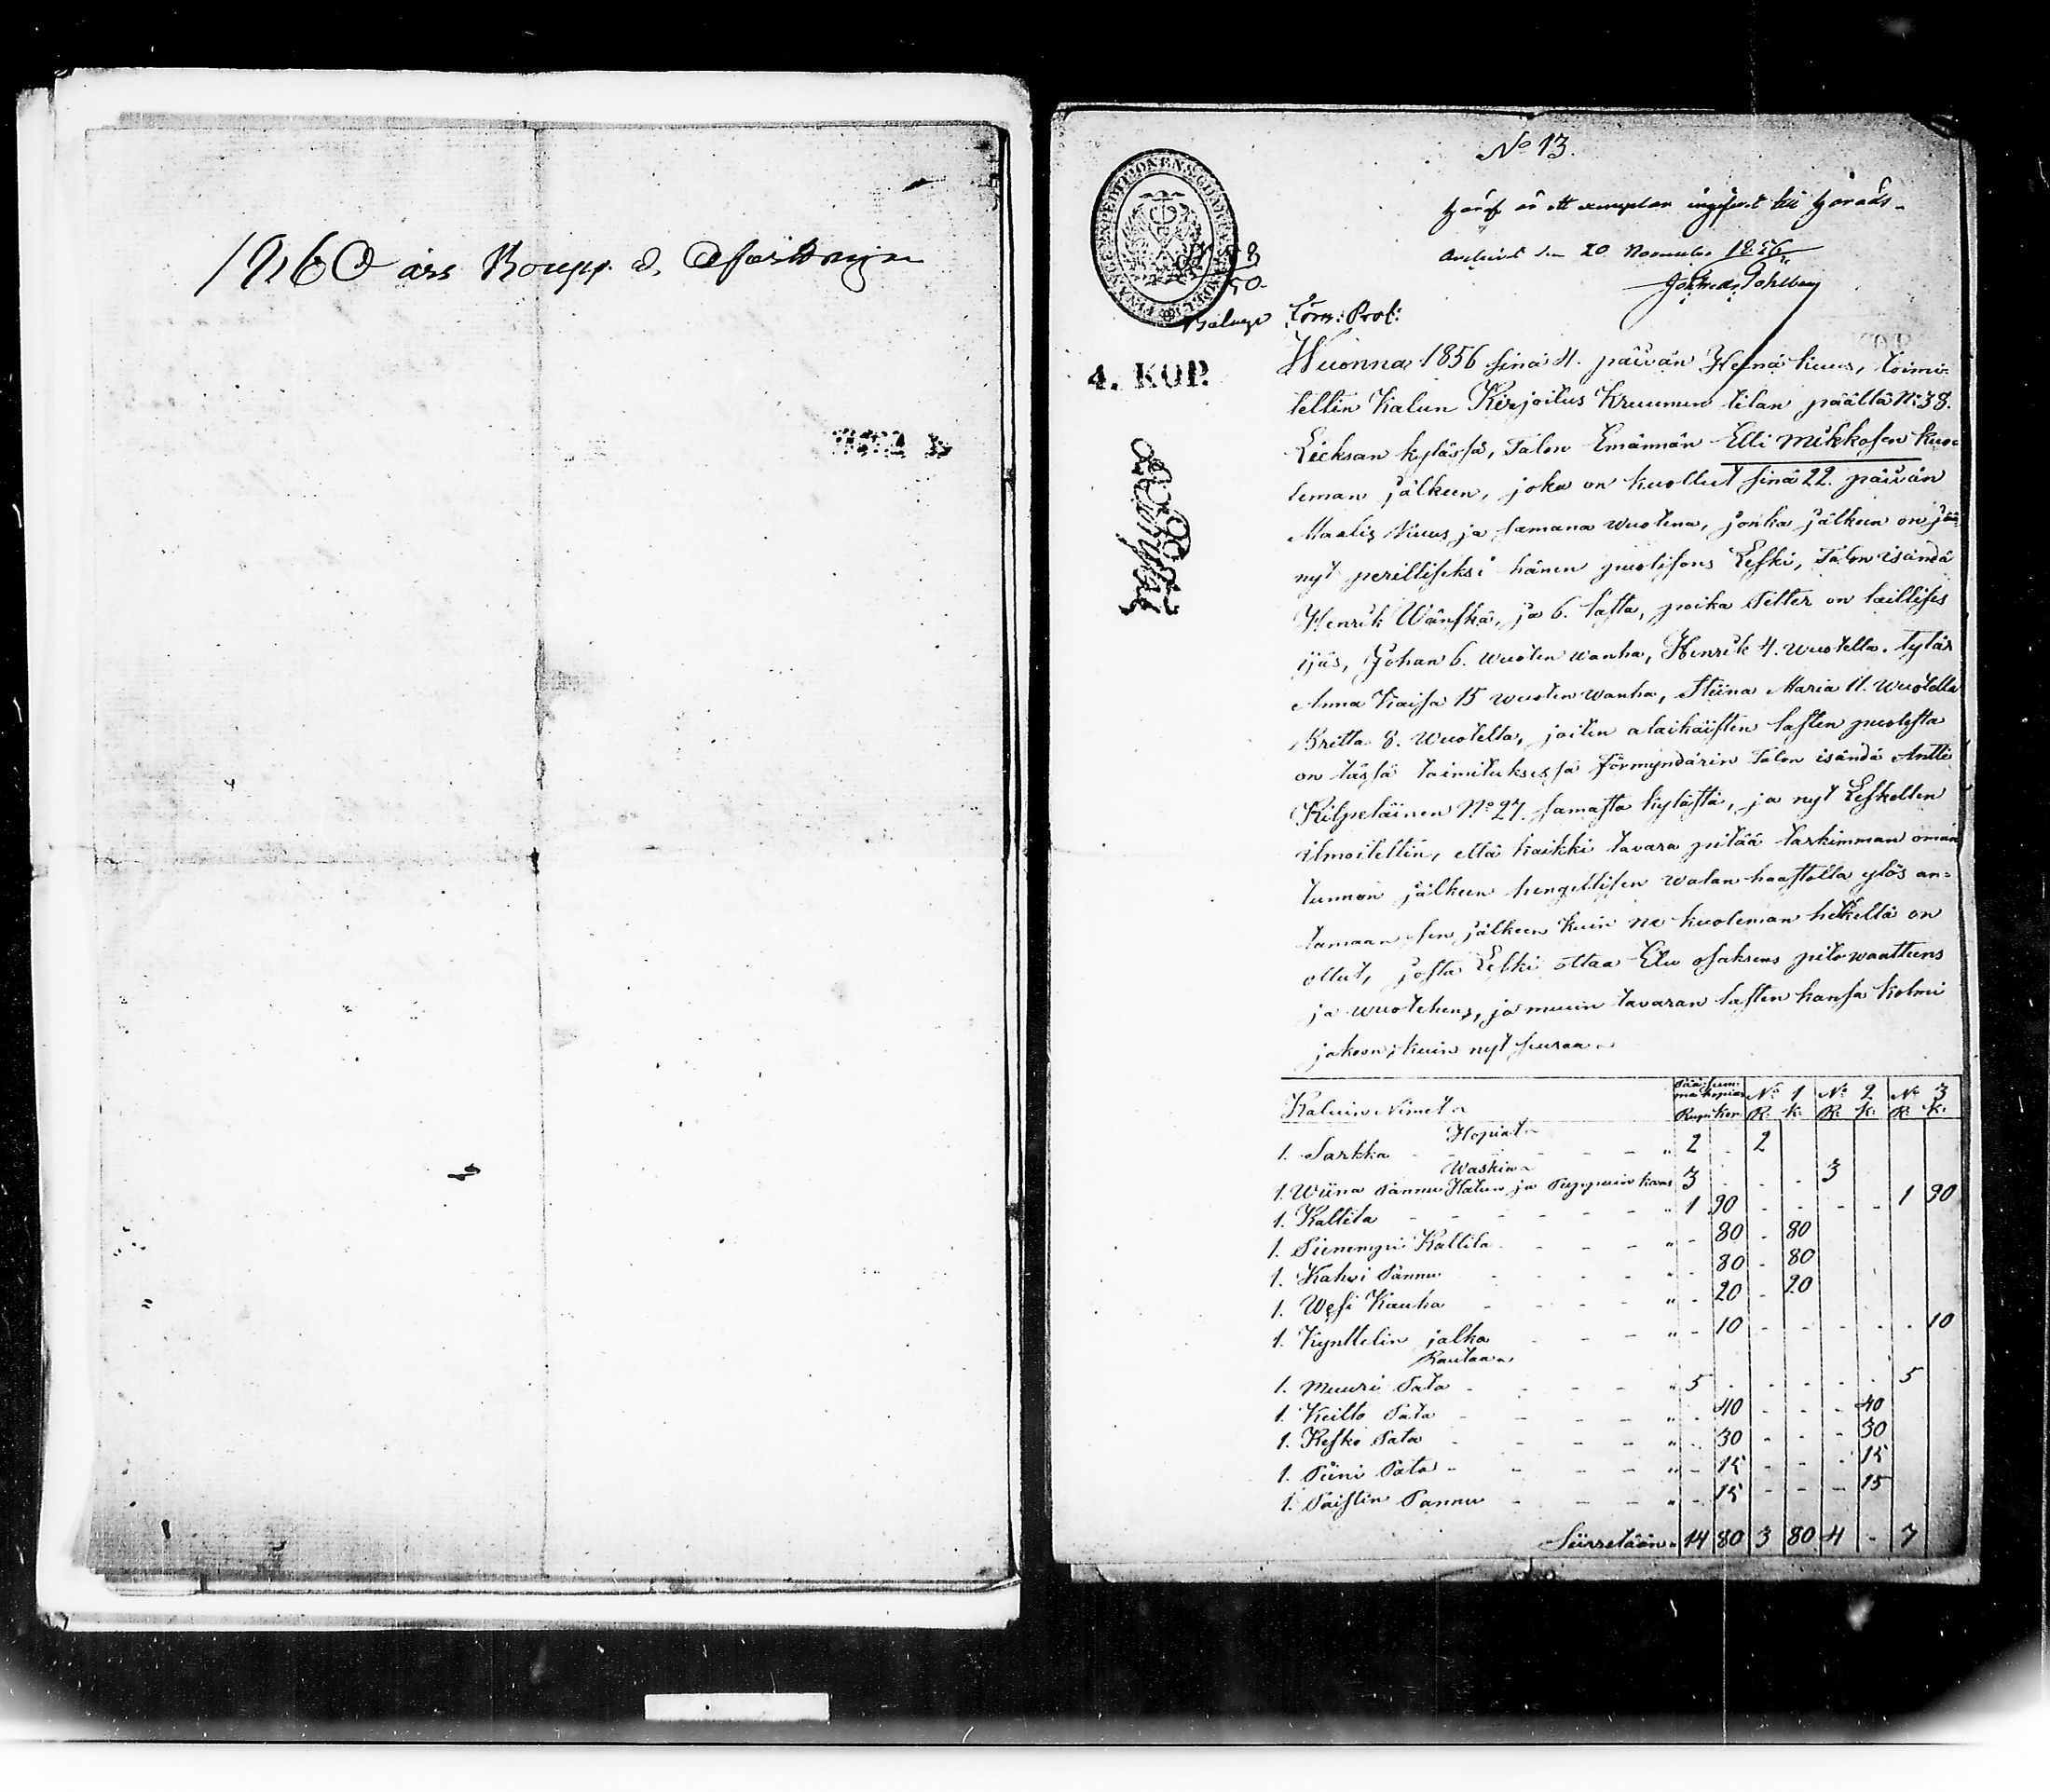 1860 års Boupp. o.
No 13.
Häraf är ett exemplar ingifvet till Härads-
Archivet den 20 November 1856,
4. KOP.
Wuonna 1856 sinä 4. päivän Heinä kuus, toimi-
tettin Kalun Kirjoitus Kruunun tilan päällä No 38.
Lieksan kylässä, Talon Emännän Elli Mikkosen kuo-
leman jälkeen, joka on kuollut sinä 22. päivän
Maalis Kuus ja samana wuotena, jonka jälkeen on jää-
nyt perilliseksi hänen puolisons Leski, Talon isändä
Henrik Wänskä, ja 6. lasta, poika Petter on laillises
ijäs, Johan 6. wuoten wanha, Henrik 4. wuotella. tytär
Anna Kaisa 15 wuoten wanha, Stiina Maria 11. wuotella
Britta 8. wuotella, joiten alaikäisten lasten puolesta
on tässä toimituksessa Förmyndärin Talon isändä Antti
Kilpeläinen No 27. samasta kylästä, ja nyt Leskellen
ilmoitettin, että kaikki tavara pitää tarkimman oman
tunnon jälkeen hengellisen walan haastolla ylös an-
tamaan sen jälkeen kuin ne kuoleman hetkellä on
ollut, josta Leski ottaa Etu osaksens pito waatteens
ja wuotehens, ja muun tavaran lasten kansa kolmi
jakoon; kuin nyt seuraa
Kaluin Nimet No 1 No 2 No 3
Rupl. Kop. R. K. R. K. R. K.
Hopiat
1. Sarkka " 2 - 2
Waskia
1. Wiina Pannu Hatun ja Piippuin kans 3 - - - 3
1. Kattila " 1 90 - - - - 1 90
1. Pienempi Kattila " - 80 - 80
1. Kahvi Pannu " - 80 - 80
1. Wesi Kauha " - 20 - 20
1. Kynttelin jalka " - 10 - - - - - 10
Rautaa
1. Muuri Pata " 5 - - - - - 5
1. Keitto Pata " - 40 - - - 40
1. Kesko Pata " - 30 - - - 30
1. Piini Pata " - 15 - - - 15
1. Paistin Pannu " - 15 - - - 15
Siirretään " 14 80 3 80 4 - 7